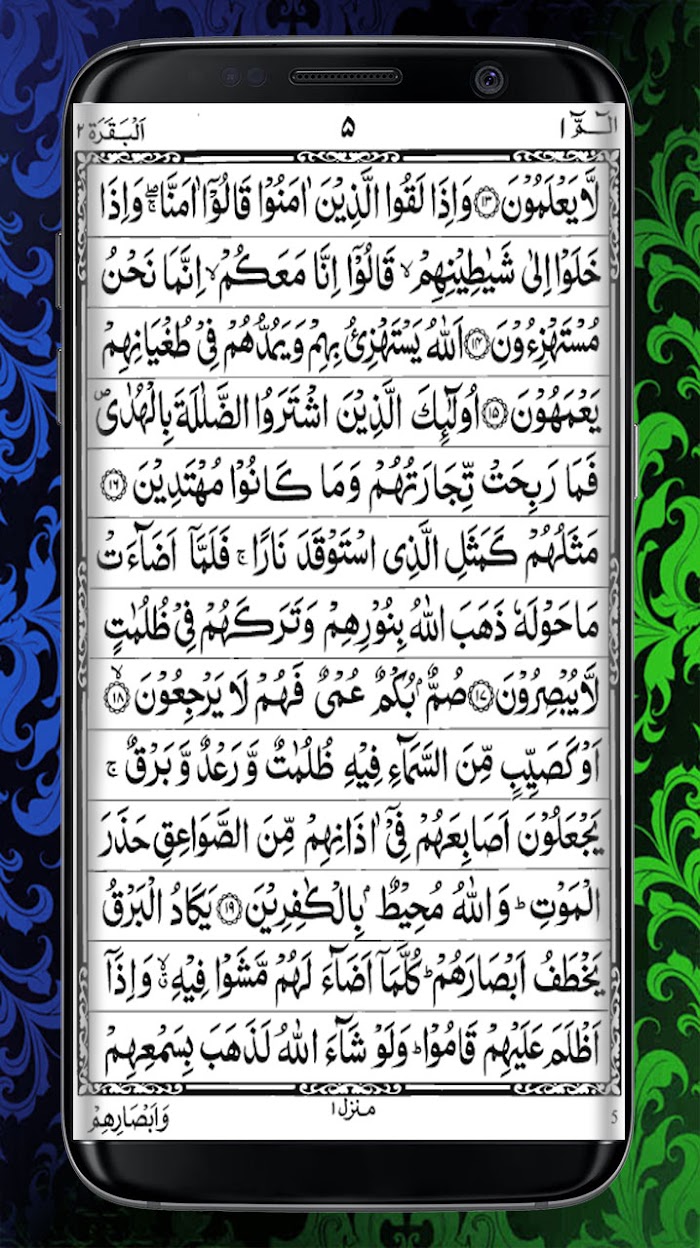 الٓمّٓ ١ ۵ اَلْبَقَرَة ٢
لَّا يَعْلَمُوْنَ ﴿١٣﴾ وَاِذَا لَقُوا الَّذِيْنَ اٰمَنُوْا قَالُوْٓا اٰمَنَّا ۚۖ وَاِذَا
خَلَوْا اِلٰى شَيٰطِيْنِهِمْ ۙ قَالُوْٓا اِنَّا مَعَكُمْ ۙ اِنَّمَا نَحْنُ
مُسْتَهْزِءُوْنَ ﴿١٤﴾ اَللّٰهُ يَسْتَهْزِئُ بِهِمْ وَيَمُدُّهُمْ فِيْ طُغْيَانِهِمْ
يَعْمَهُوْنَ ﴿١٥﴾ اُولٰٓئِكَ الَّذِيْنَ اشْتَرَوُا الضَّلٰلَةَ بِالْهُدٰى ۪
فَمَا رَبِحَتْ تِّجَارَتُهُمْ وَمَا كَانُوْا مُهْتَدِيْنَ ﴿١٦﴾
مَثَلُهُمْ كَمَثَلِ الَّذِى اسْتَوْقَدَ نَارًا ۚ فَلَمَّآ اَضَآءَتْ
مَا حَوْلَهٗ ذَهَبَ اللّٰهُ بِنُوْرِهِمْ وَتَرَكَهُمْ فِيْ ظُلُمٰتٍ
لَّا يُبْصِرُوْنَ ﴿١٧﴾ صُمٌّۢ بُكْمٌ عُمْيٌ فَهُمْ لَا يَرْجِعُوْنَ ۙ﴿١٨﴾
اَوْ كَصَيِّبٍ مِّنَ السَّمَآءِ فِيْهِ ظُلُمٰتٌ وَّرَعْدٌ وَّبَرْقٌ ۚ
يَجْعَلُوْنَ اَصَابِعَهُمْ فِيْٓ اٰذَانِهِمْ مِّنَ الصَّوَاعِقِ حَذَرَ
الْمَوْتِ ؕ وَاللّٰهُ مُحِيْطٌۢ بِالْكٰفِرِيْنَ ﴿١٩﴾ يَكَادُ الْبَرْقُ
يَخْطَفُ اَبْصَارَهُمْ ؕ كُلَّمَآ اَضَآءَ لَهُمْ مَّشَوْا فِيْهِ ۙ وَاِذَآ
اَظْلَمَ عَلَيْهِمْ قَامُوْا ؕ وَلَوْ شَآءَ اللّٰهُ لَذَهَبَ بِسَمْعِهِمْ
منزل ١
وَاَبْصَارِهِمْ
5